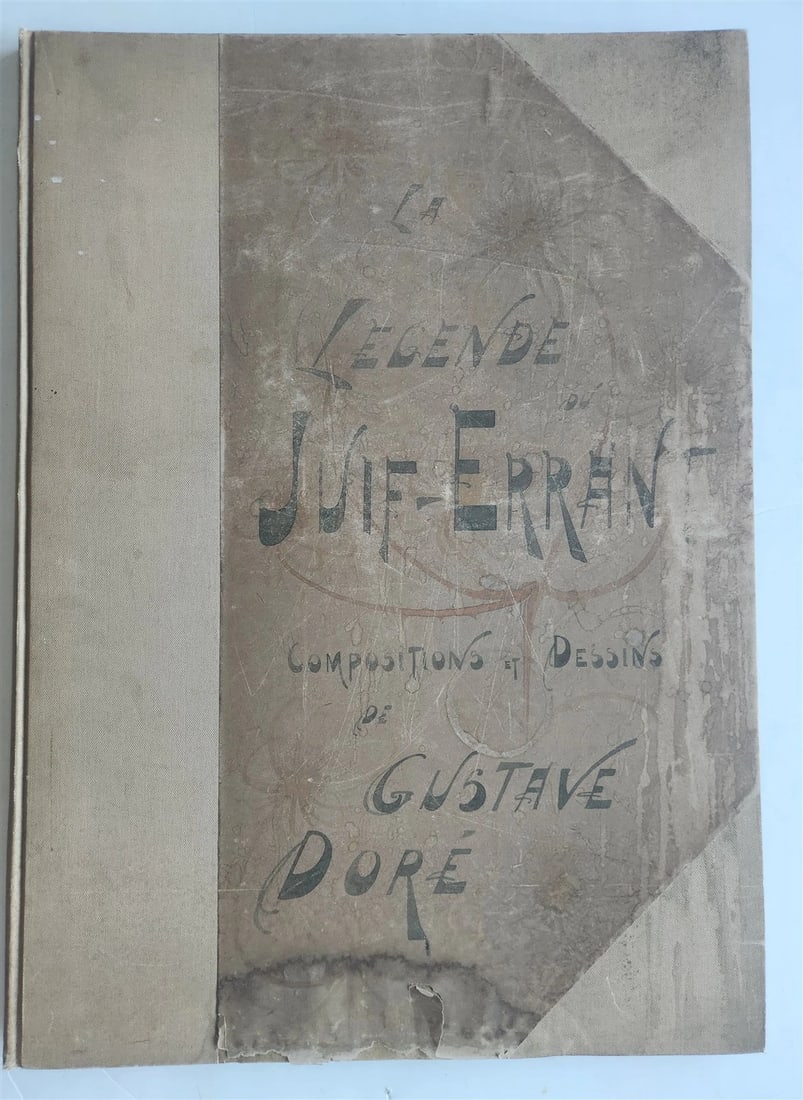 LA
LEGENDE
DU
JUIF-ERRANT
COMPOSITIONS ET DESSINS
DE
GUSTAVE
DORÉ